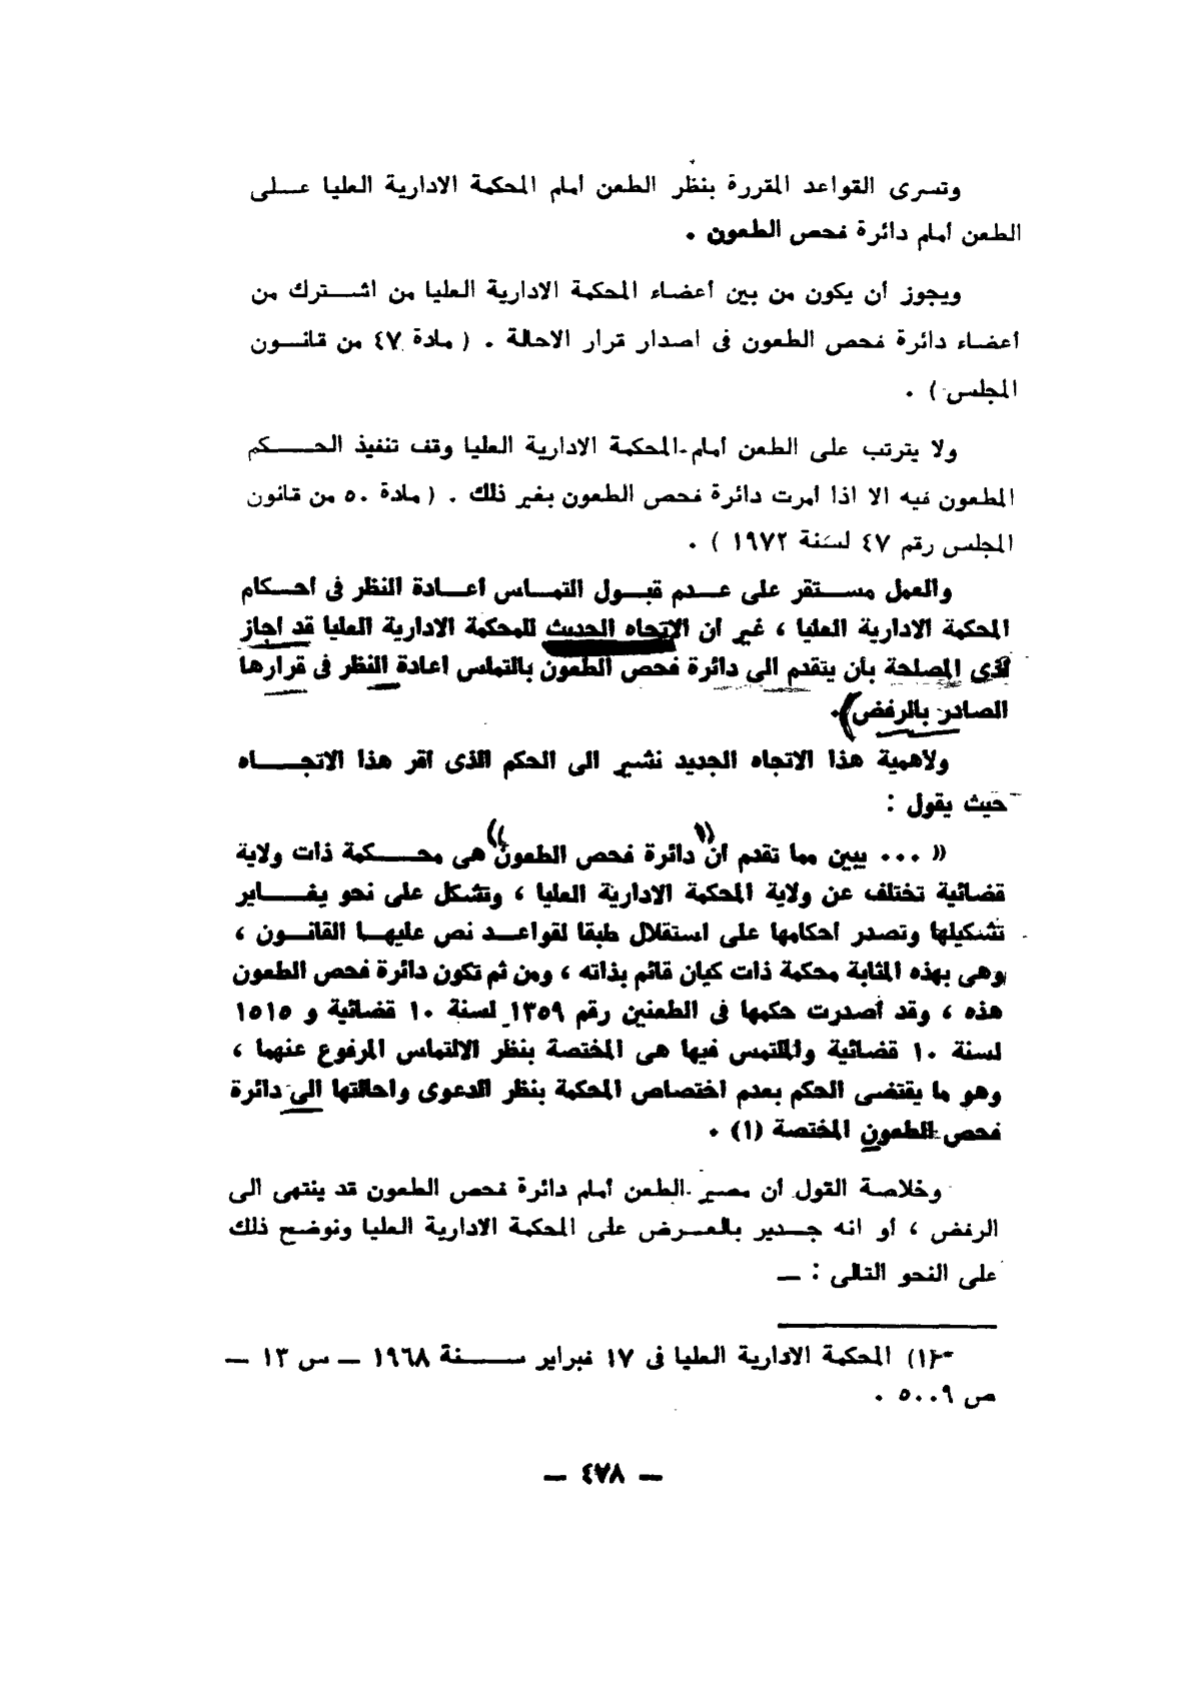 وتسرى القواعد المقررة بنظر الطعن أمام المحكمة الادارية العليا على
الطعن أمام دائرة فحص الطعون .
ويجوز أن يكون من بين أعضاء المحكمة الادارية العليا من اشترك من
أعضاء دائرة فحص الطعون فى اصدار قرار الاحالة . ( مادة ٤٧ من قانون
المجلس ) .
ولا يترتب على الطعن أمام المحكمة الادارية العليا وقف تنفيذ الحكم
المطعون فيه الا اذا أمرت دائرة فحص الطعون بغير ذلك . ( مادة ٥٠ من قانون
المجلس رقم ٤٧ لسنة ١٩٧٢ ) .
والعمل مستقر على عدم قبول التماس أعادة النظر فى احكام
المحكمة الادارية العليا ، غير ان الاتجاه الحديث للمحكمة الادارية العليا قد اجاز
لذى المصلحة بأن يتقدم الى دائرة فحص الطعون بالتماس اعادة النظر فى قرارها
الصادر بالرفض .
ولاهمية هذا الاتجاه الجديد نشير الى الحكم الذى اقر هذا الاتجاه
حيث يقول :
« ... يبين مما تقدم ان دائرة فحص الطعون هى محكمة ذات ولاية
قضائية تختلف عن ولاية المحكمة الادارية العليا ، وتشكل على نحو يغاير
تشكيلها وتصدر احكامها على استقلال طبقا لقواعد نص عليها القانون ،
وهى بهذه المثابة محكمة ذات كيان قائم بذاته ، ومن ثم تكون دائرة فحص الطعون
هذه ، وقد أصدرت حكمها فى الطعنين رقم ١٣٥٩ لسنة ١٠ قضائية و ١٥١٥
لسنة ١٠ قضائية والملتمس فيها هى المختصة بنظر الالتماس المرفوع عنهما ،
وهو ما يقتضى الحكم بعدم اختصاص المحكمة بنظر الدعوى واحالتها الى دائرة
فحص الطعون المختصة (١) .
وخلاصة القول أن مصير الطعن أمام دائرة فحص الطعون قد ينتهى الى
الرفض ، أو انه جدير بالعرض على المحكمة الادارية العليا ونوضح ذلك
على النحو التالى : —
(١) المحكمة الادارية العليا فى ١٧ فبراير سنة ١٩٦٨ — س ١٣ —
ص ٥٠٠٩ .
— ٤٧٨ —